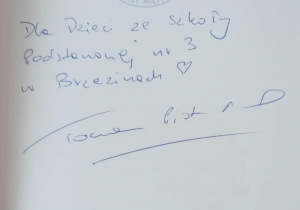 Dla Dzieci ze Szkoły
Podstawowej nr 3
w Brzezinach ♡